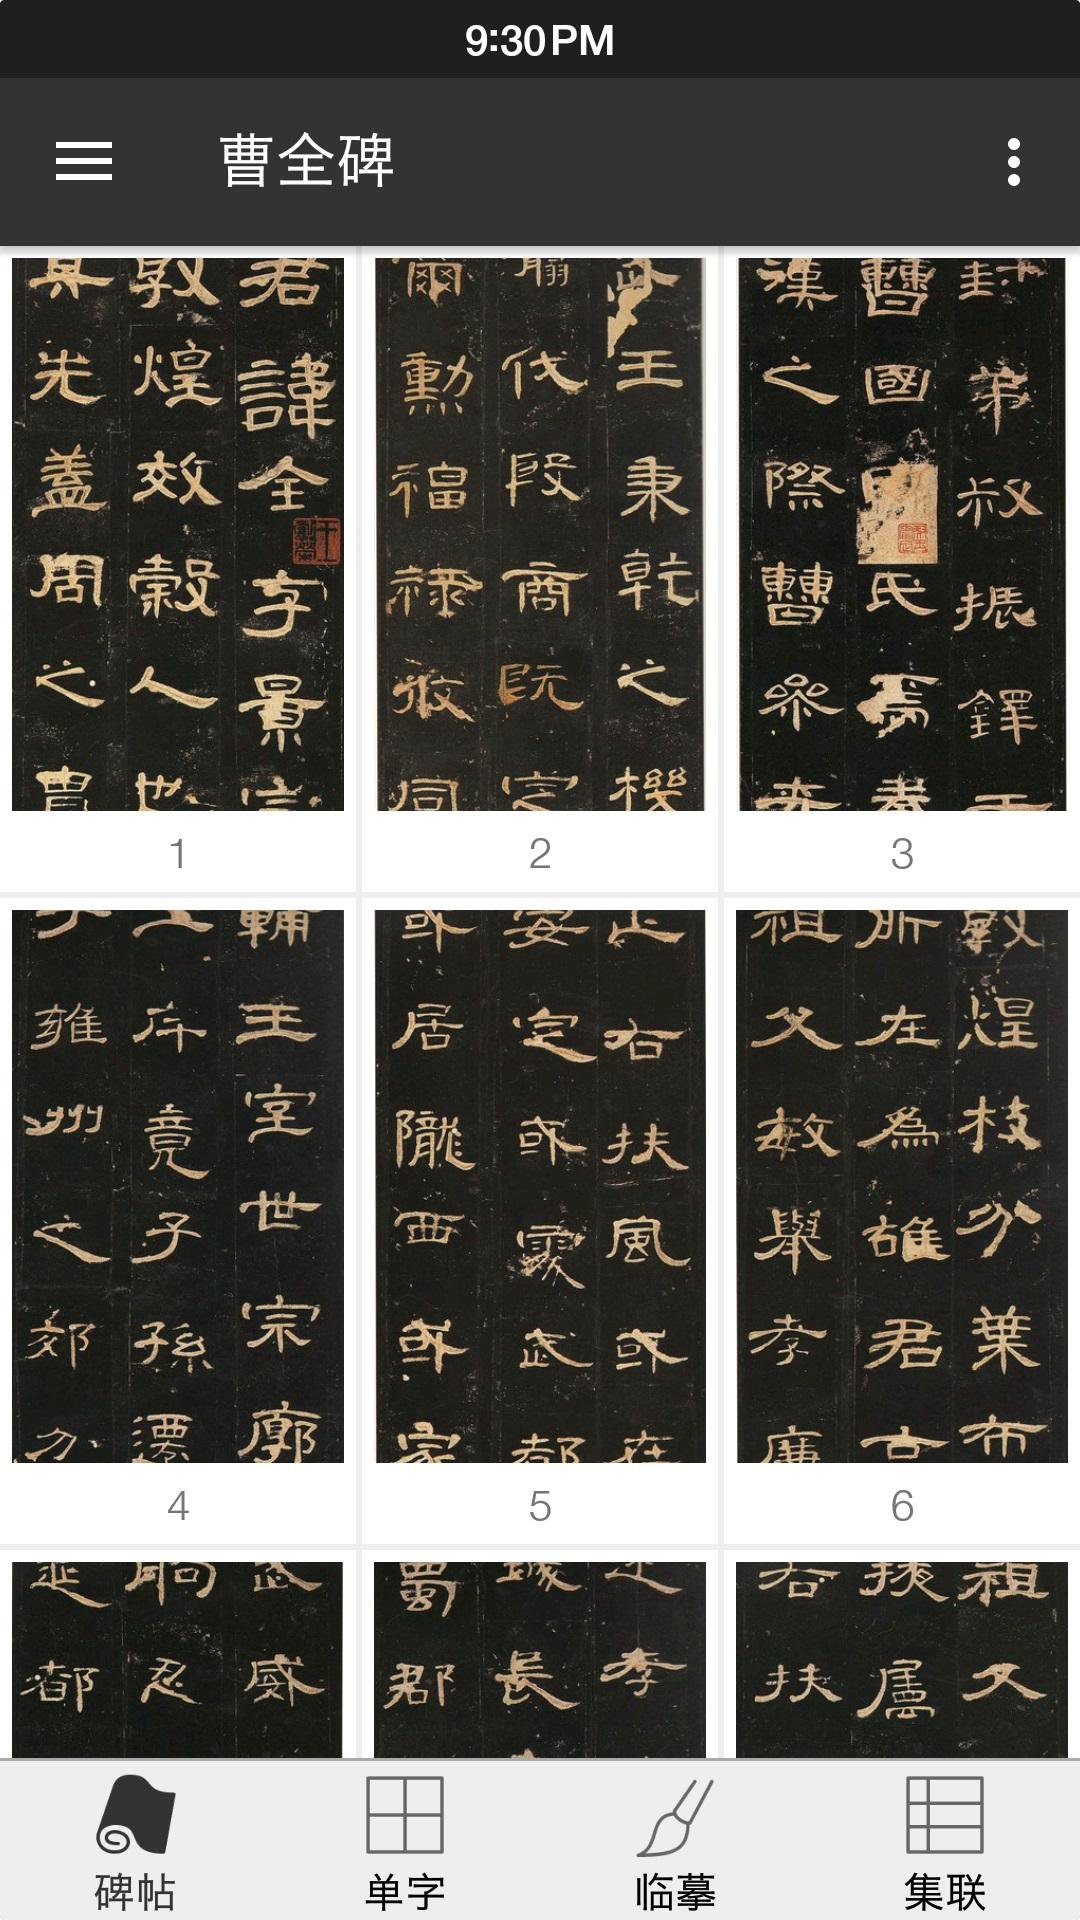 9:30PM
曹全碑
君諱全字景完
敦煌效穀人也
其先蓋周之胄
1
王秉乾之機
代殷商既定
爾勳福祿攸同
2
封弟叔振鐸于
曹國氏焉秦
漢之際曹參夾
3
輔王室世宗廓
土斥竟子孫遷
于雍州之郊分
4
止右扶風或在
安定或處武都
或居隴西或家
5
敦煌枝葉分布
所在為雄君高
祖父敏舉孝廉
6
武威
朐忍
延都
孝
長
蜀郡
祖父
扶
右扶
碑帖
单字
临摹
集联